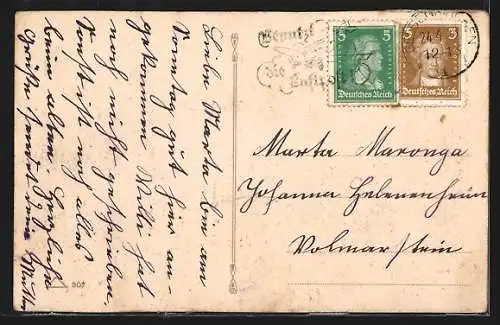 Liebe Marta bin am
Sonntag gut hier an-
gekommen Willi hat
noch nicht geschrieben
sonst ist noch alles
beim alten. Herzliche
Grüße sendet deine Mutter
Benutzt
die
Luftpost
5 5
Deutsches Reich
3 3
Deutsches Reich
24.6
12-1
Marta Maronga
Johanna Helenenheim
Volmarstein